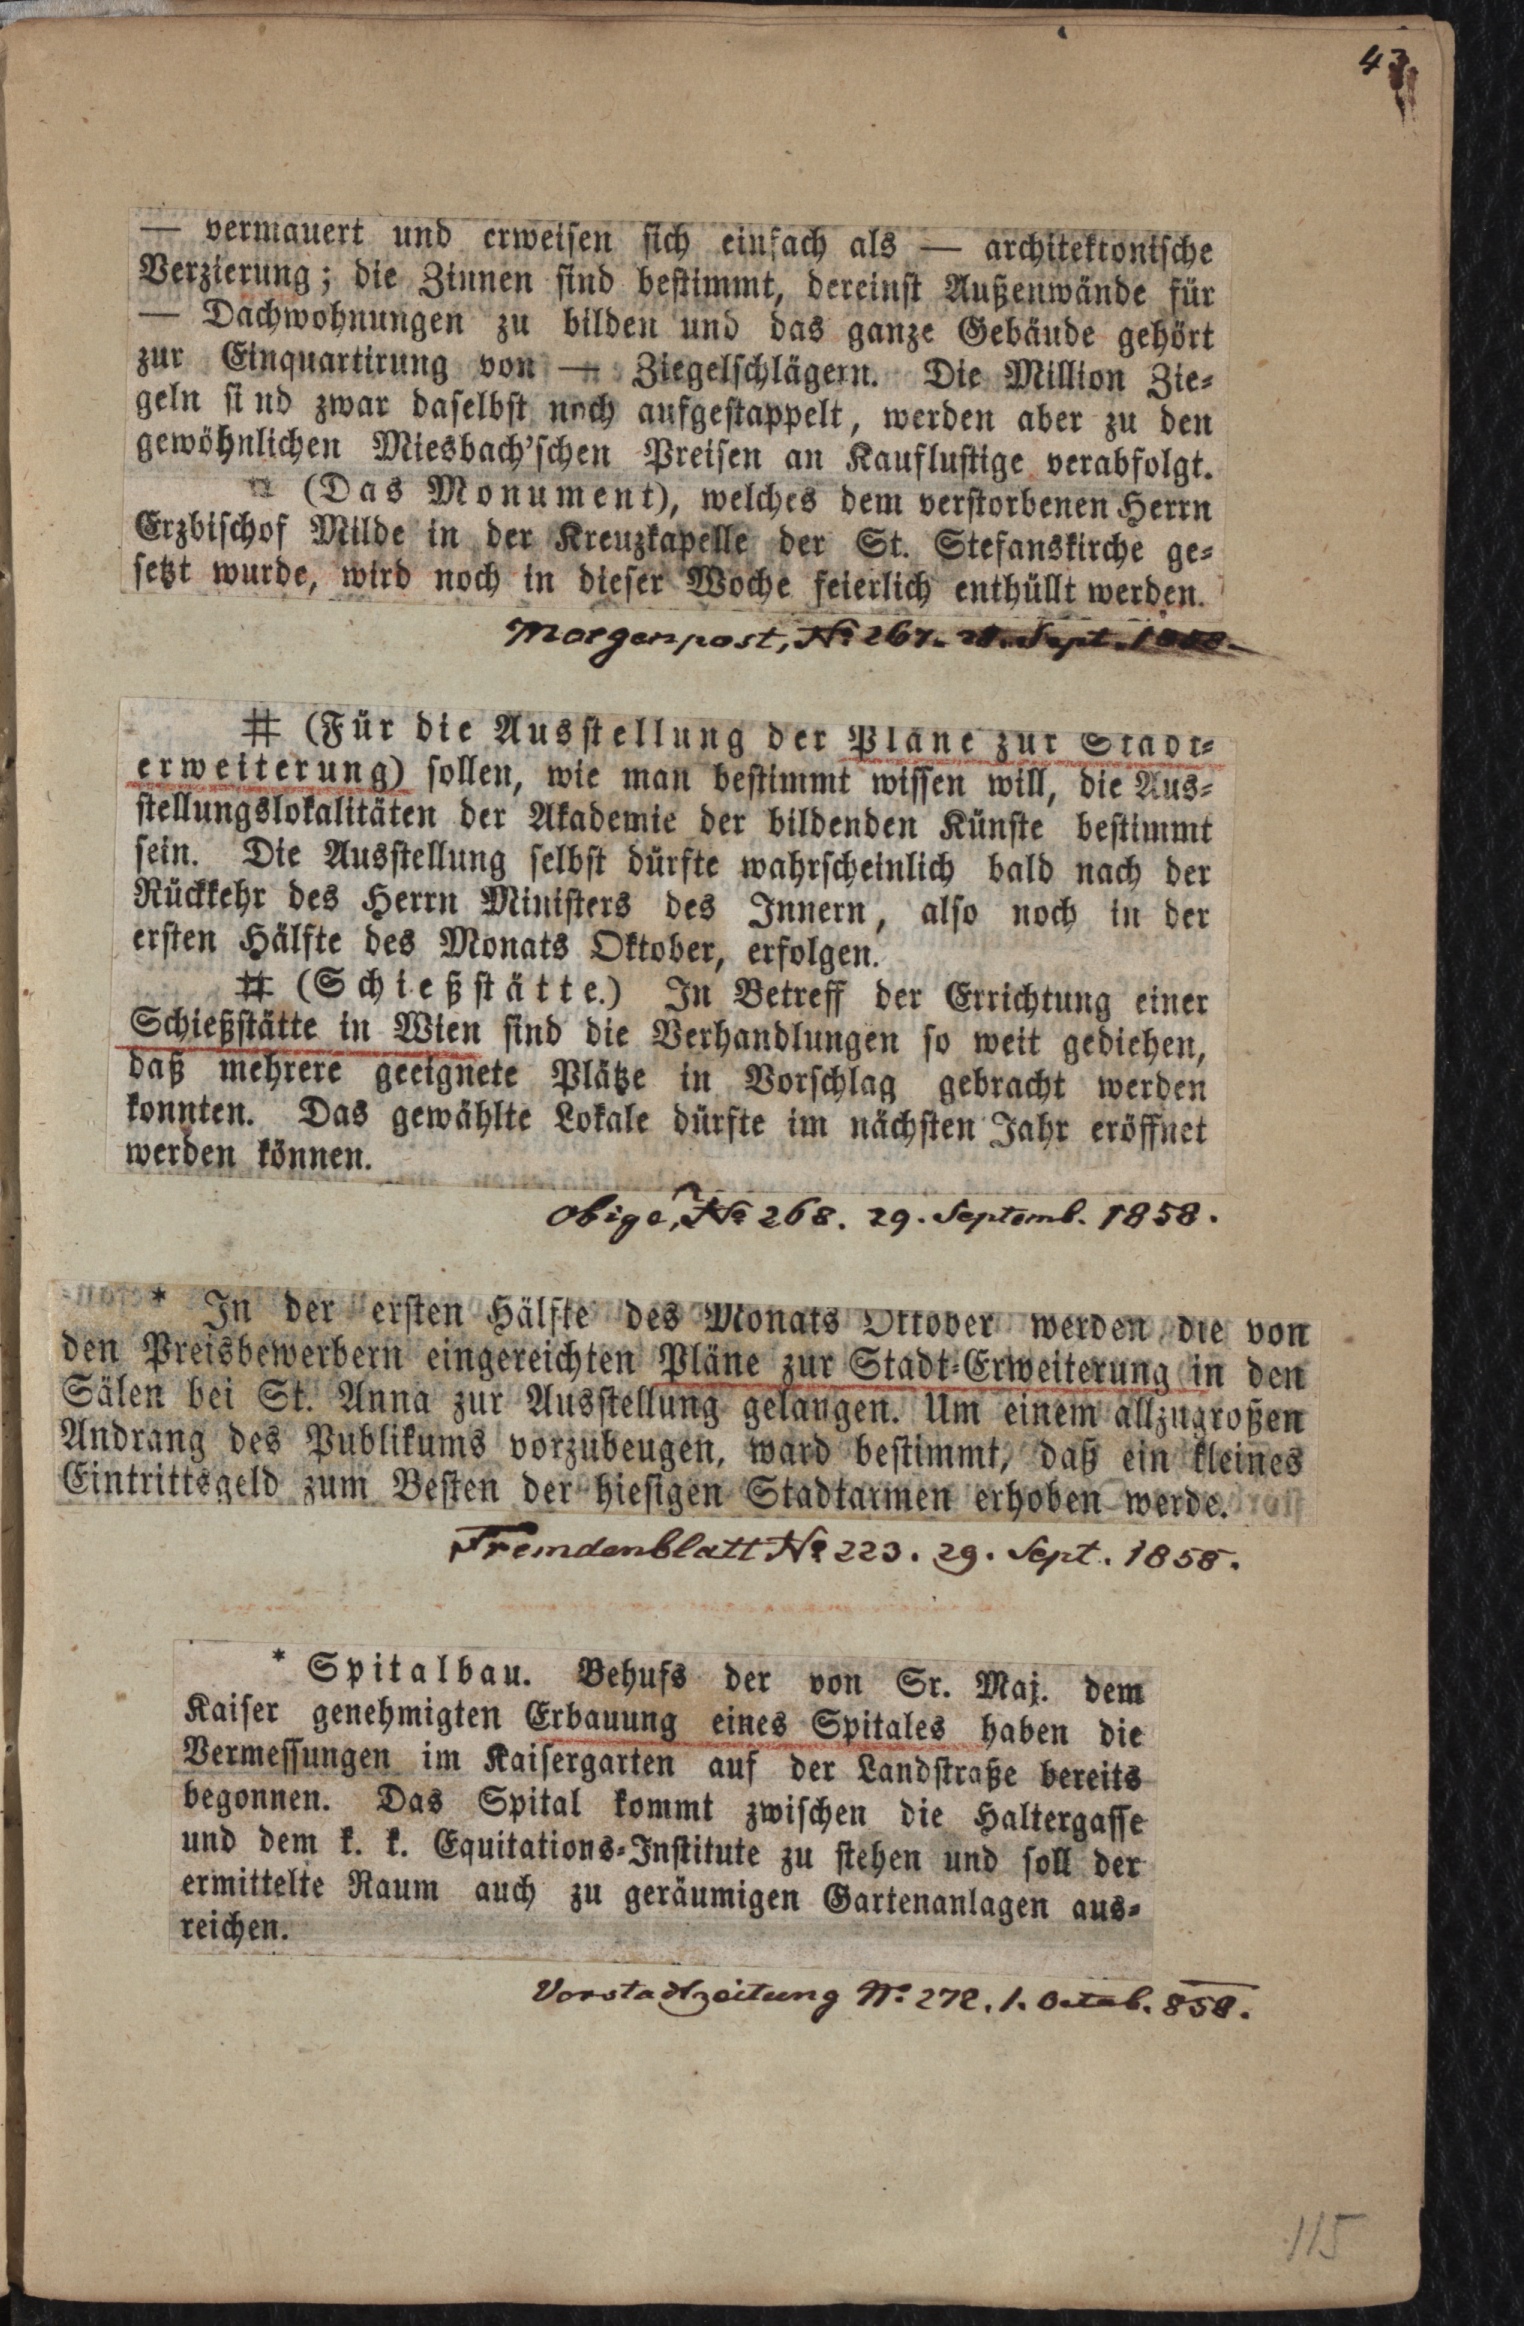 43
— vermauert und erweisen sich einfach als — architektonische
Verzierung; die Zinnen sind bestimmt, dereinst Außenwände für
— Dachwohnungen zu bilden und das ganze Gebäude gehört
zur Einquartirung von — Ziegelschlägern. Die Million Zie-
geln sind zwar daselbst noch aufgestappelt, werden aber zu den
gewöhnlichen Miesbach'schen Preisen an Kauflustige verabfolgt.
¤ (Das Monument), welches dem verstorbenen Herrn
Erzbischof Milde in der Kreuzkapelle der St. Stefanskirche ge-
setzt wurde, wird noch in dieser Woche feierlich enthüllt werden.
Morgenpost, No 267. 28. Sept. 1858.
# (Für die Ausstellung der Pläne zur Stadt-
erweiterung) sollen, wie man bestimmt wissen will, die Aus-
stellungslokalitäten der Akademie der bildenden Künste bestimmt
sein. Die Ausstellung selbst dürfte wahrscheinlich bald nach der
Rückkehr des Herrn Ministers des Innern, also noch in der
ersten Hälfte des Monats Oktober, erfolgen.
# (Schießstätte.) In Betreff der Errichtung einer
Schießstätte in Wien sind die Verhandlungen so weit gediehen,
daß mehrere geeignete Plätze in Vorschlag gebracht werden
konnten. Das gewählte Lokale dürfte im nächsten Jahr eröffnet
werden können.
Obige, No 268. 29. Septemb. 1858.
* In der ersten Hälfte des Monats Oktober werden die von
den Preisbewerbern eingereichten Pläne zur Stadt-Erweiterung in den
Sälen bei St. Anna zur Ausstellung gelangen. Um einem allzugroßen
Andrang des Publikums vorzubeugen, ward bestimmt, daß ein kleines
Eintrittsgeld zum Besten der hiesigen Stadtarmen erhoben werde.
Fremdenblatt No 223. 29. Sept. 1858.
* Spitalbau. Behufs der von Sr. Maj. dem
Kaiser genehmigten Erbauung eines Spitales haben die
Vermessungen im Kaisergarten auf der Landstraße bereits
begonnen. Das Spital kommt zwischen die Haltergasse
und dem k. k. Equitations-Institute zu stehen und soll der
ermittelte Raum auch zu geräumigen Gartenanlagen aus-
reichen.
Vorstadtzeitung No. 272. 1. Octob. 858.
115